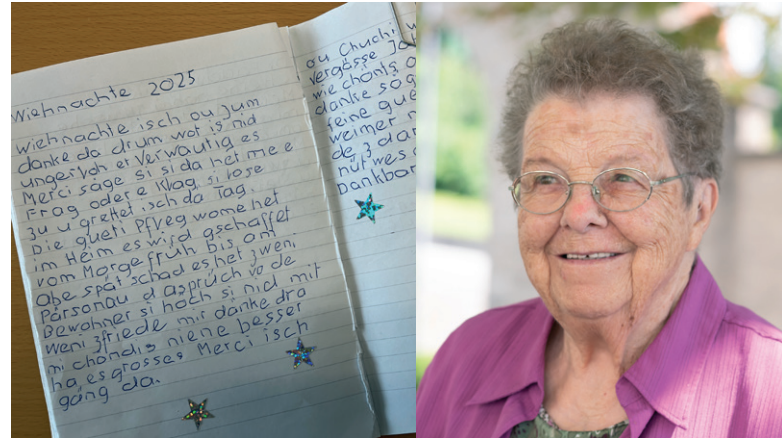 Wiehnachte 2025
wiehnachte isch ou zum
danke da drum wot is nid
Verwautig es
Merci säge si si da het me e
Frag oder e Klag, si lose
zu u grettet isch da Tag.
Die gueti Pfleg wome het
im Heim es wird gschaffet
vom Morge früh bis am
Abe spät schad es het zweni
Personau d asprüch vo de
Bewohner si hoch si nid mit
weni zfriede mir danke dra
mi chönd is niene besser
ha, es grosses Merci isch
gäng da.
ou Chuchi
vergässe
wie chönts
danke
feine
weimer
de z
nüt wes
Dankbar